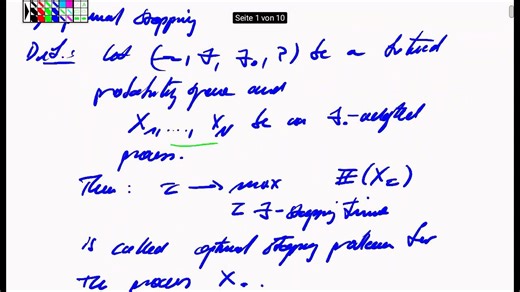 Seite 1 von 10
optimal stopping
Def.: Let (Ω, F, F., P) be a filtered
probability space and
X₁, ..., X_N be an F.-adapted
process.
Then: τ → max E(X_τ)
τ F-stopping time
is called optimal stopping problem for
the process X.